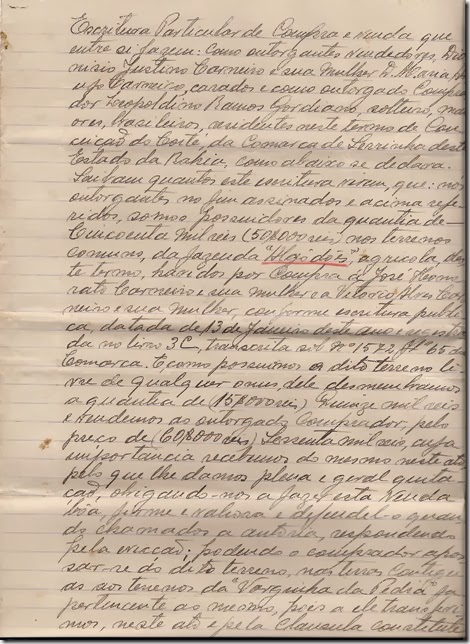 Escritura Particular de Compra e venda que
entre si fazem: como outorgantes vendedores, Dio
nisio Justino Carneiro e sua Mulher D. Ma
Carneiro, casados e como outorgado Compra
dor Leopoldino Ramos Gordiano, solteiro, mai
ores, brasileiros, residentes neste termo de Con
ceição do Coité, da Comarca de Serrinha deste
Estado da Bahia, como abaixo se declara.
Saibam quantos este escritura virem, que: nos
outorgantes no fim assinados e acima refe
ridos, somos possuidores da quantia de
Cincoenta mil reis (50$000 reis) nos terrenos
comuns, da fazenda "Algodões", agricola, des
te termo, havidos por Compra a José Hono
rato Carneiro e sua mulher e a Vitorio Alves Car
neiro e sua Mulher, conforme escritura publi
ca, datada de 13 de Janeiro deste ano e registra
da no livro 3C, transcrita sob Nº 1572 fls 65 da
Comarca. E como possuimos o dito terreno li
vre de qualquer onus, dele desmembramos
a quantia de (15$000 reis) Quinze mil reis
e vendemos ao outorgado Comprador, pelo
preço de (60$000 reis) Sessenta mil reis, cuja
importancia recebemos do mesmo neste ato
pelo que lhe damos plena e geral quita
cão, obrigando-nos a fazer esta venda
bôa, firme e valiosa e defendel-o quan
do chamados a autoria, respondendo
pela evicção; podendo o comprador apos
sar-se do dito terreno, nas terras contigu
as aos terrenos da "Varginha da Pedra" ja
pertencente ao mesmo, pois a ele transferi
mos, neste ato e pela Clausula constituti